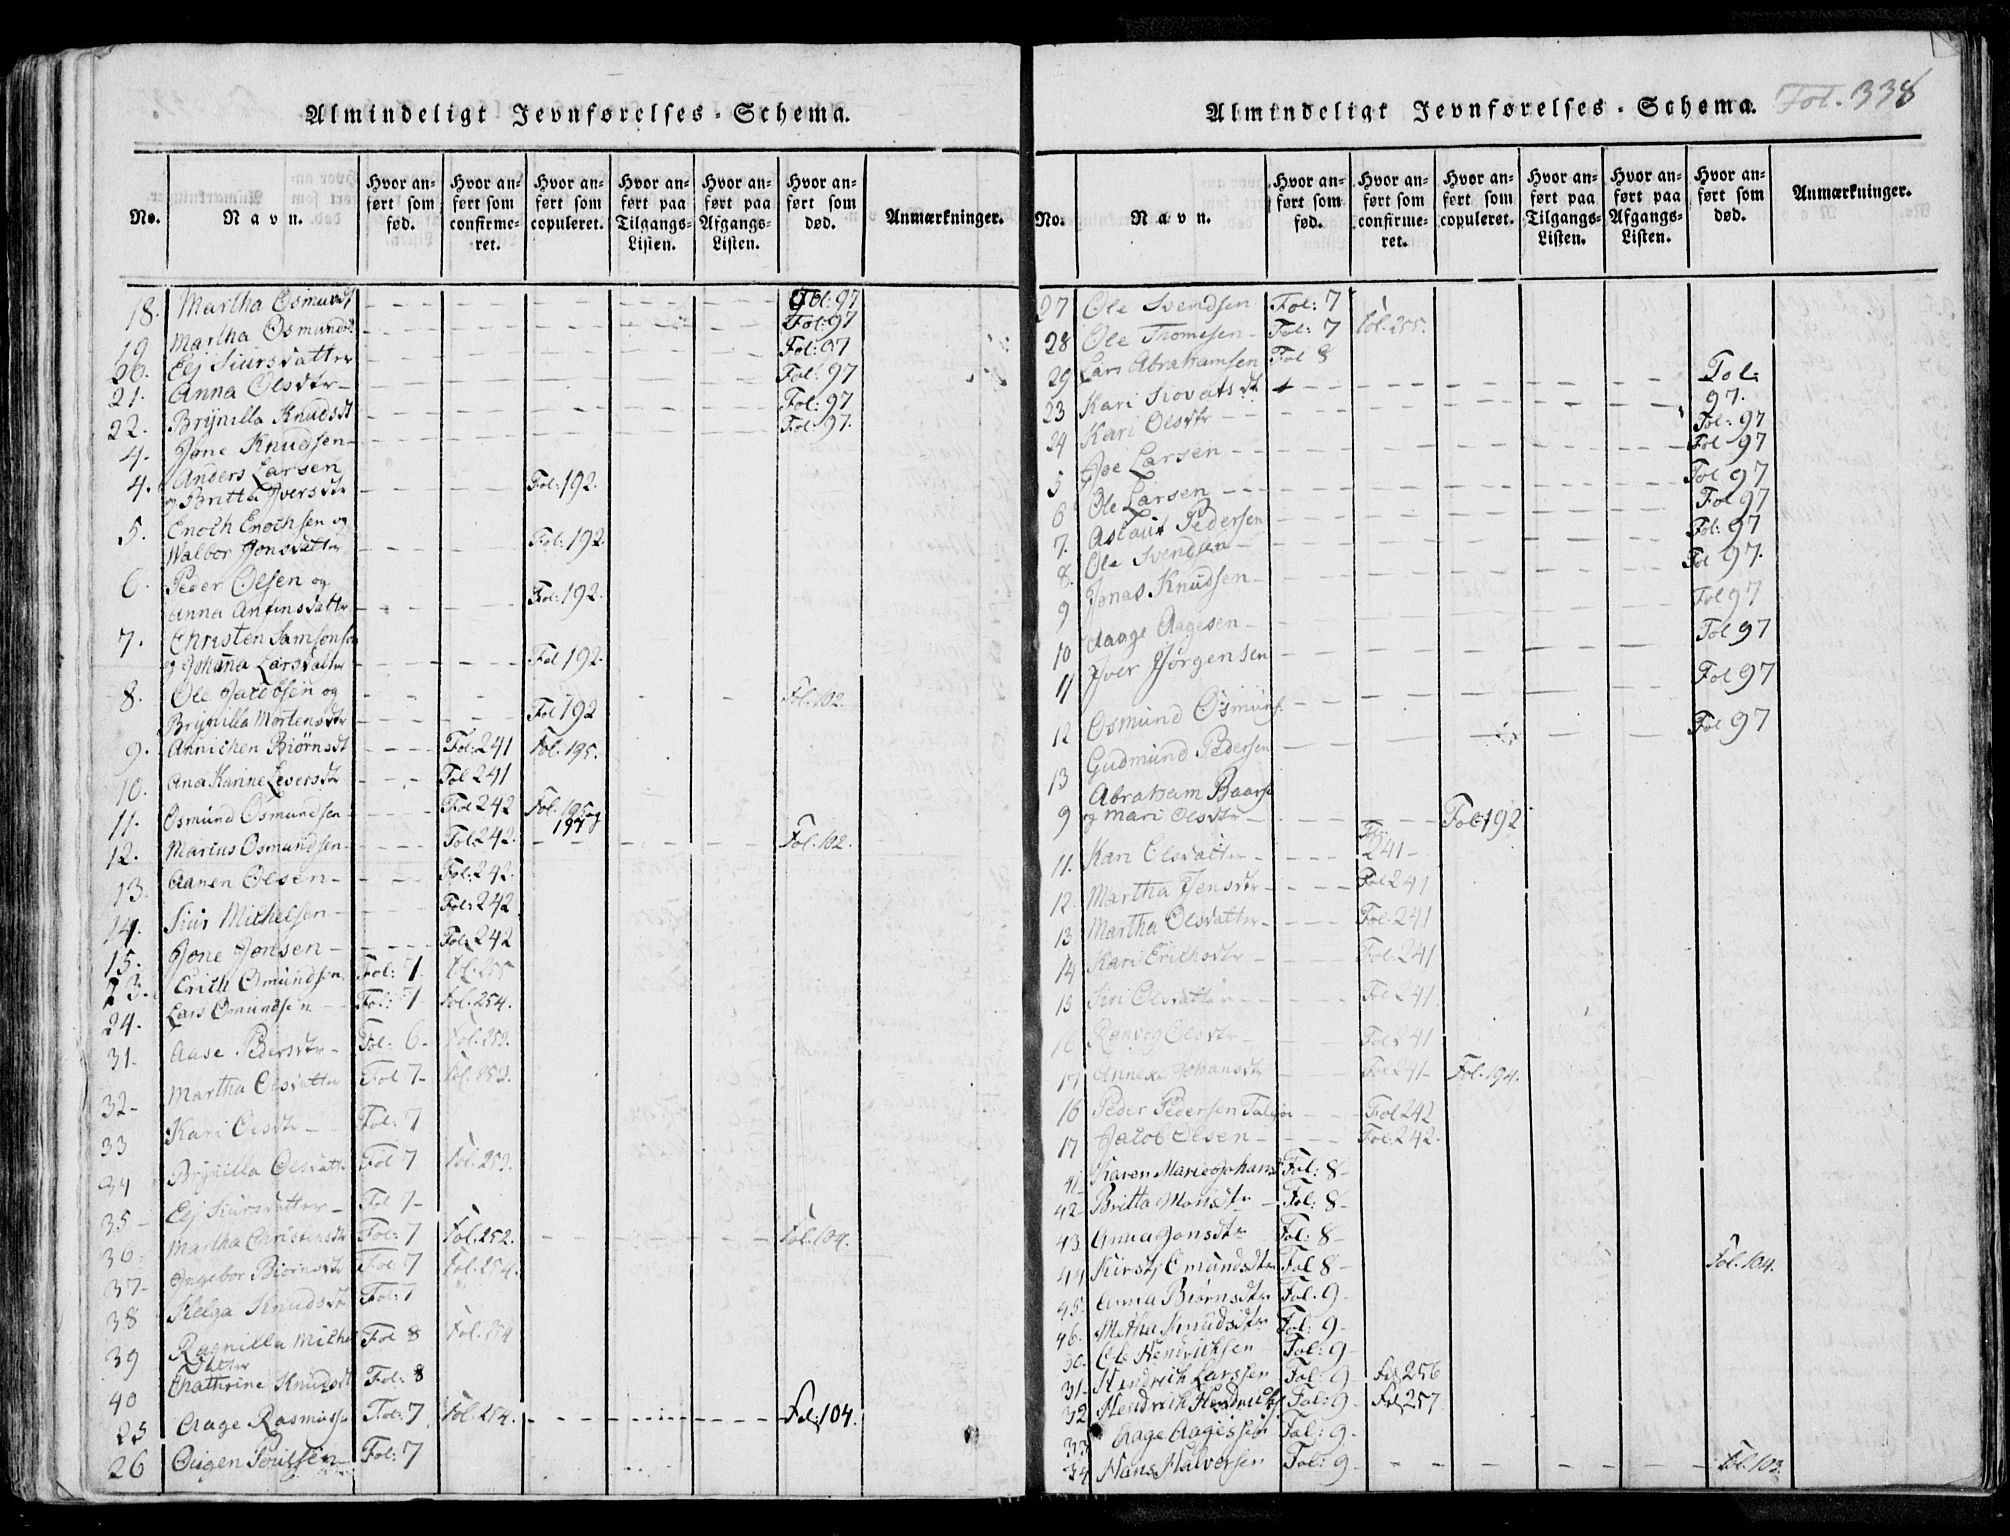 Almindeligt Jevnførelses-Schema.
No. Navn. Hvor anført som fød. Hvor anført som confirmeret. Hvor anført som copuleret. Hvor anført paa Tilgangs-Listen. Hvor anført paa Afgangs-Listen. Hvor anført som død. Anmærkninger.
18. Martha Osmundsdt Fol: 97
19. Martha Osmunds Fol: 97
20. Elj Siursdatter Fol: 97
21. Anna Olsdtr Fol: 97
22. Brynilla Knudsdt Fol: 97
4. Jone Knudsen Fol 97.
4. Anders Larsen
og Britta Iversdtr Fol: 192.
5. Enoch Enochsen og
Walbor Jonsdatter Fol: 192.
6. Peder Olsen og
Anna Anfinsdatter Fol: 192.
7. Christen Samsonsen
og Johanna Larsdatter Fol 192.
8. Ole Jacobsen og Fol. 102.
Brynilla Mortensdtr Fol 192
9. Annichen Biørnsdt Fol: 241 Fol. 195.
10. Ana Karine Leversdtr Fol 241
11. Osmund Osmundsen Fol 242 Fol. 195 og
197
12. Marius Osmundsen Fol: 242. Fol. 102.
13. Aanen Olsen Fol: 242.
14. Siur Michelsen Fol: 242
15. Jone Jonsen Fol: 242
23. Erich Omundsen Fol: 1. Fol. 255
24. Lars Omundsen Fol: 1 Fol. 254.
31. Aase Pedersdtr Fol: 6 Fol. 253.
32 Martha Olsdatter Fol 7 Fol. 253.
33 Kari Olsdtr Fol: 7
34 Brynilla Olsdatt Fol 7 Fol. 253.
35 Elj Siursdatter Fol 7
36 Martha Christensdtr Fol: 7 Fol. 252. Fol. 104.
37 Ingebor Biørnsdt Fol 7 Fol. 254.
38 Helga Knudsdtr Fol: 7
39 Ragnilla Michels
datter Fol 8 Fol. 254
40 Chathrine Knudsdt Fol: 8
25 Aage Rasmuss Fol: 7 Fol. 254. Fol: 104.
26 Fol: 7
Almindeligt Jevnførelses-Schema. Fol. 338
No. Navn. Hvor anført som fød. Hvor anført som confirmeret. Hvor anført som copuleret. Hvor anført paa Tilgangs-Listen. Hvor anført paa Afgangs-Listen. Hvor anført som død. Anmærkninger.
27 Ole Svendsen Fol: 7
28 Ole Thomesen Fol: 7 Fol. 255.
29 Lars Abrahamsen Fol 8
23 Kari Siovatsdt Fol: 97.
24 Kari Olsdtr Fol: 97
5 Joe Larsen Fol 97
6 Ole Larsen Fol 97
7. Aslout Pedersen Fol 97
8. Ole Svendsen Fol: 97
9 Jonas Knudsen Fol 97.
10 Aaage Aagesen Fol 97
11 Iver Jørgensen Fol 97
12 Osmund Osmunds Fol 97
13 Gudmund Pedersen Fol 97
9 Abraham Baars
og Mari Olsdtr Fol: 192
11. Kari Olsdatter Fol: 241
12. Martha Jensdtr Fol 241
13 Martha Olsdatter Fol. 241
14 Kari Erichsdtr Fol. 241
15 Siri Olsdatter Fol 241
16 Ranveg Olsdtr Fol 241
17 Anneke Johansdtr Fol 241 Fol. 194.
16 Peder Pedersen Fol 242
17 Jacob Olsen Fol: 242.
41 Karen Marie Johans Fol: 8
42 Britta Monsdtr Fol: 8
43 Anna Jonsdtr Fol: 8
44 Kirstj Omundsdtr Fol 8 Fol. 104.
45 Anna Biørnsdtr Fol. 9
46. Metha Knudsdtr Fol: 9
30 Ole Hendrichsen Fol: 9
31 Hendrich Larssen Fol: 9 Fol 256
32 Hendrich Hendrichs Fol: 9 Fol 257
33 Aage Aagessen Fol: 9
34 Hans Halvorsen Fol: 9 Fol. 103.